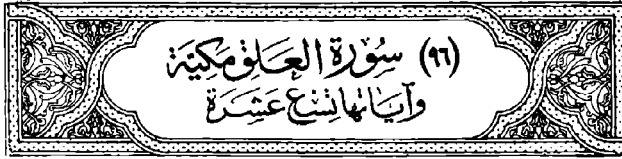 (٩٦) سُورَة العَلق مَكيَّة
وَآيَاتهَا تِسْع عَشِرَة